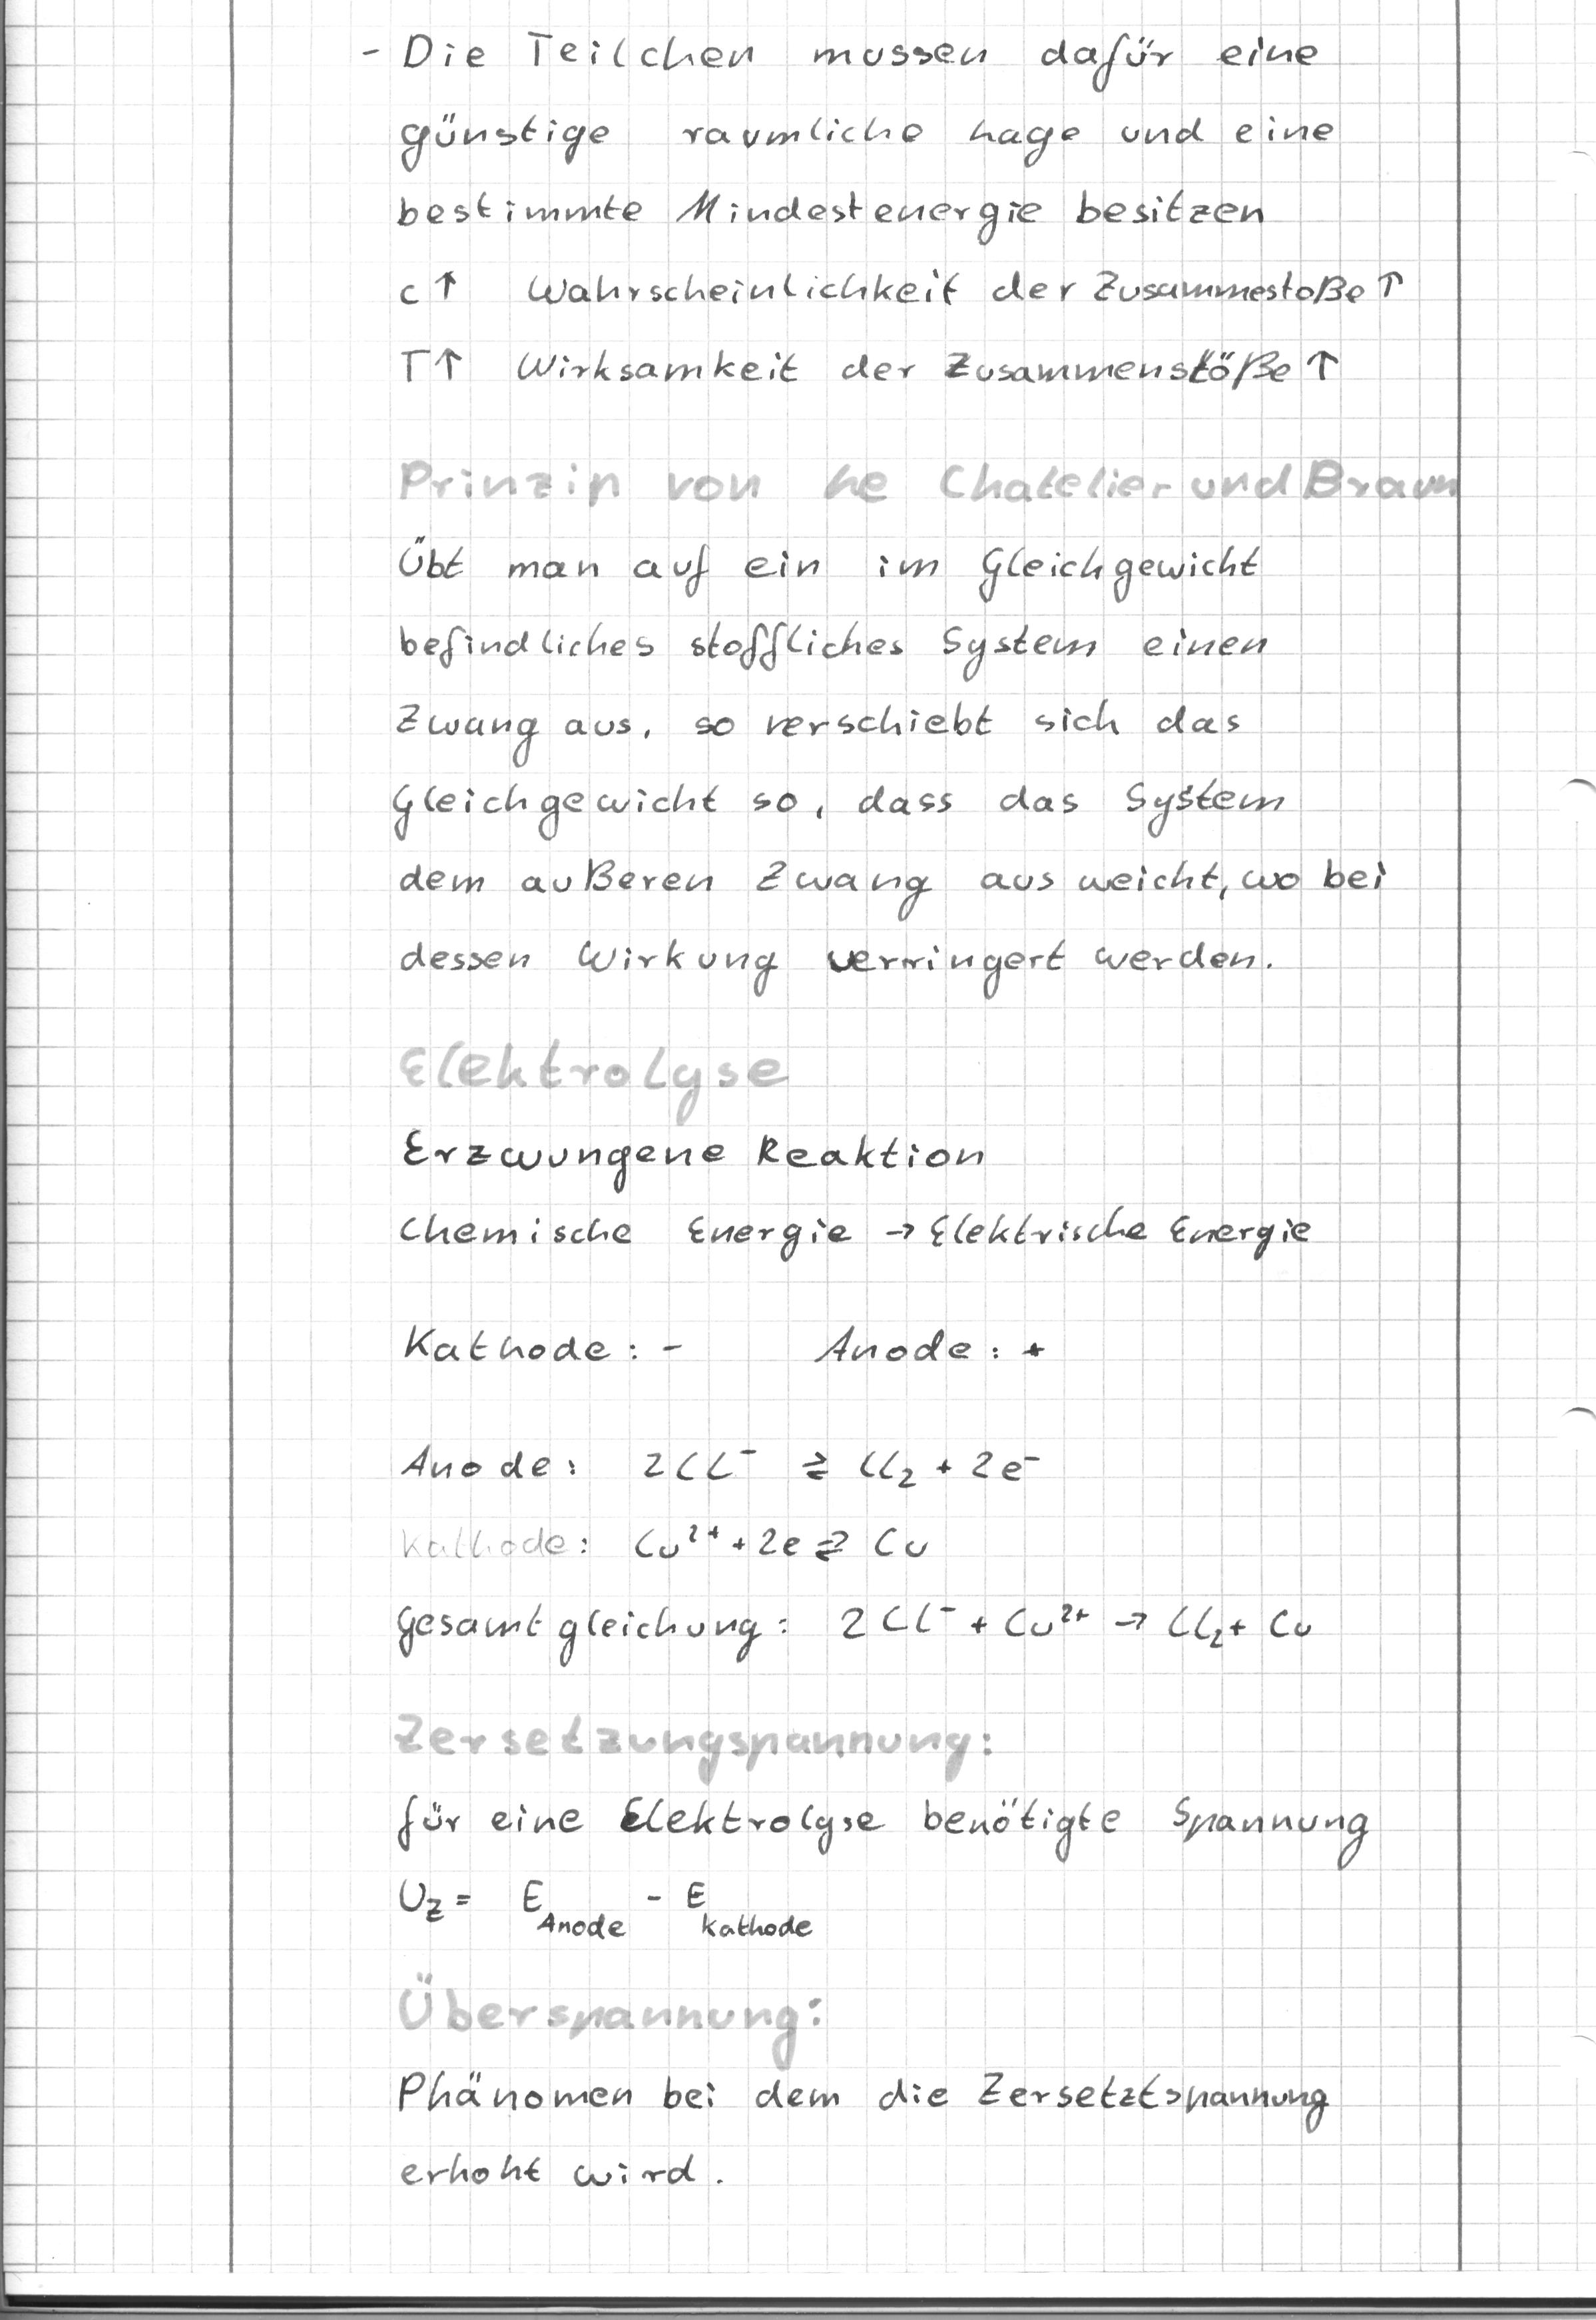 - Die Teilchen mussen dafür eine
günstige raumliche Lage und eine
bestimmte Mindestenergie besitzen
c↑ Wahrscheinlichkeit der Zusammestoße↑
T↑ Wirksamkeit der Zusammenstöße↑
Prinzip von Le Chatelier und Braun
Übt man auf ein im Gleichgewicht
befindliches stoffliches System einen
Zwang aus, so verschiebt sich das
Gleichgewicht so, dass das System
dem außeren Zwang aus weicht, wo bei
dessen Wirkung verringert werden.
Elektrolyse
Erzwungene Reaktion
Chemische Energie → Elektrische Energie
Kathode: - Anode: +
Anode: 2Cl⁻ ⇄ Cl₂ + 2e⁻
Kathode: Cu²⁺ + 2e ⇄ Cu
Gesamtgleichung: 2Cl⁻ + Cu²⁺ → Cl₂ + Cu
Zersetzungspannung:
für eine Elektrolyse benötigte Spannung
U_Z = E_Anode - E_Kathode
Überspannung:
Phänomen bei dem die Zersetztspannung
erhoht wird.